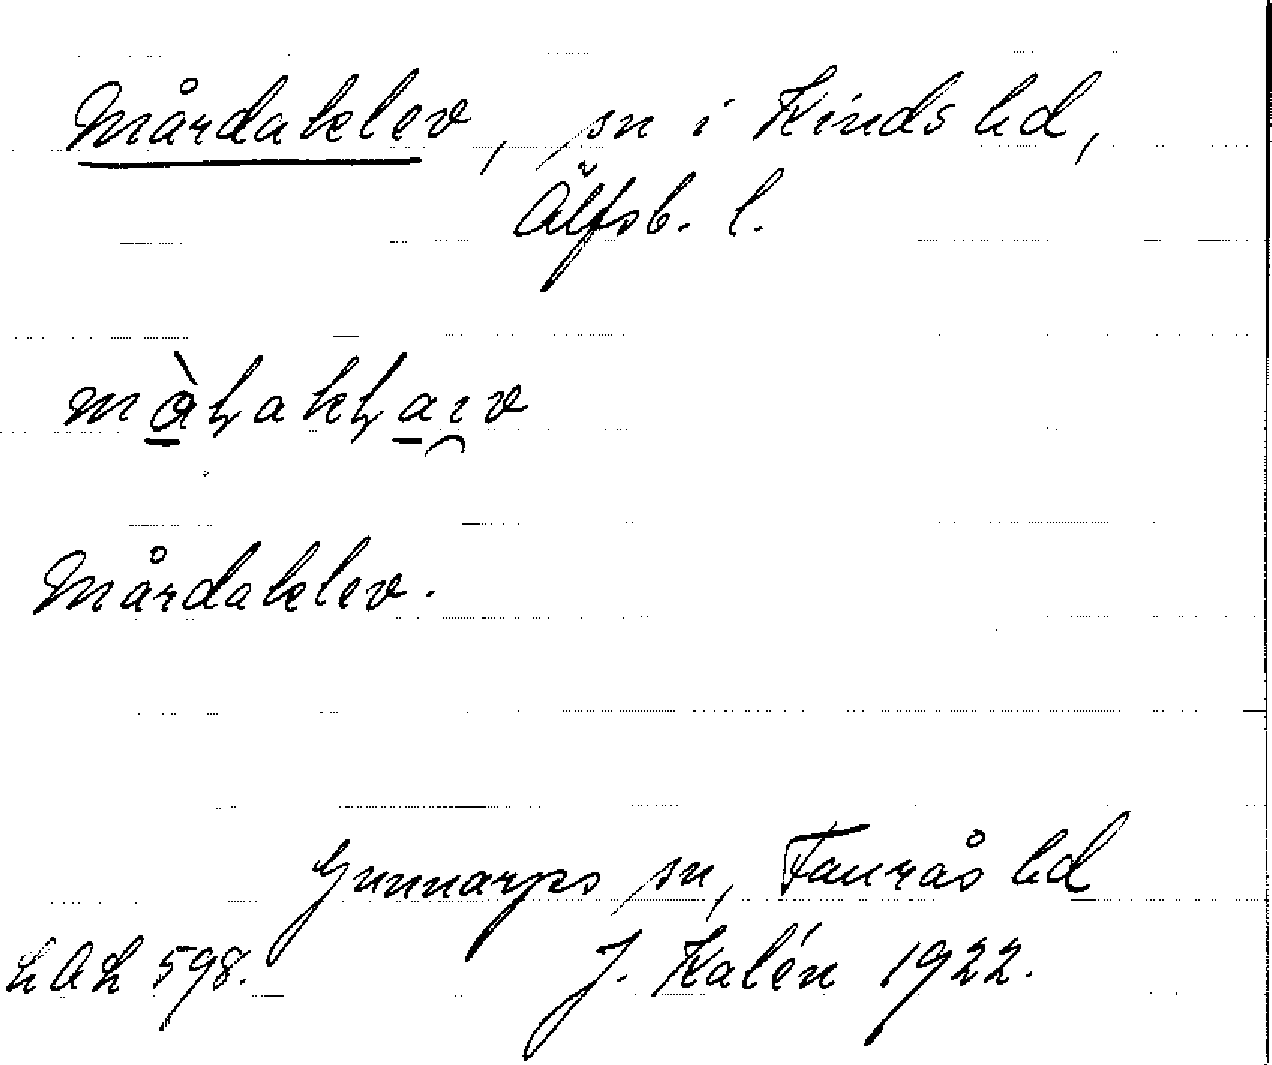 Mårdaklev, sn i Kinds hd,
Älfsb. l.
Mårdaklev.
Gunnarps sn, Faurås hd
LAL 598. J. Kalén 1922.